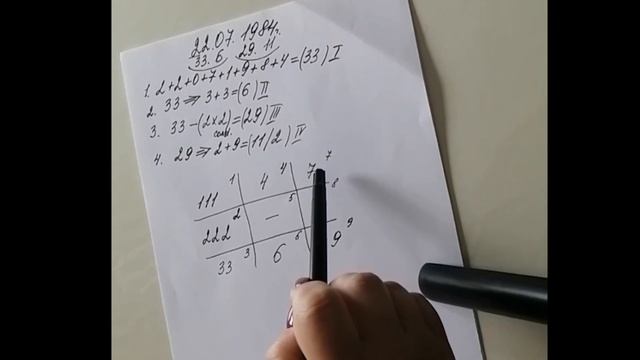 22.07.1984г.
33.6 29.11
1. 2+2+0+7+1+9+8+4=(33) I
2. 33 ⇒ 3+3=(6) II
3. 33-(2×2)=(29) III
4. 29 ⇒ 2+9=(11/2) IV
111 1 4 4 7 7
222 2 — 5 8
33 3 6 6 9 9